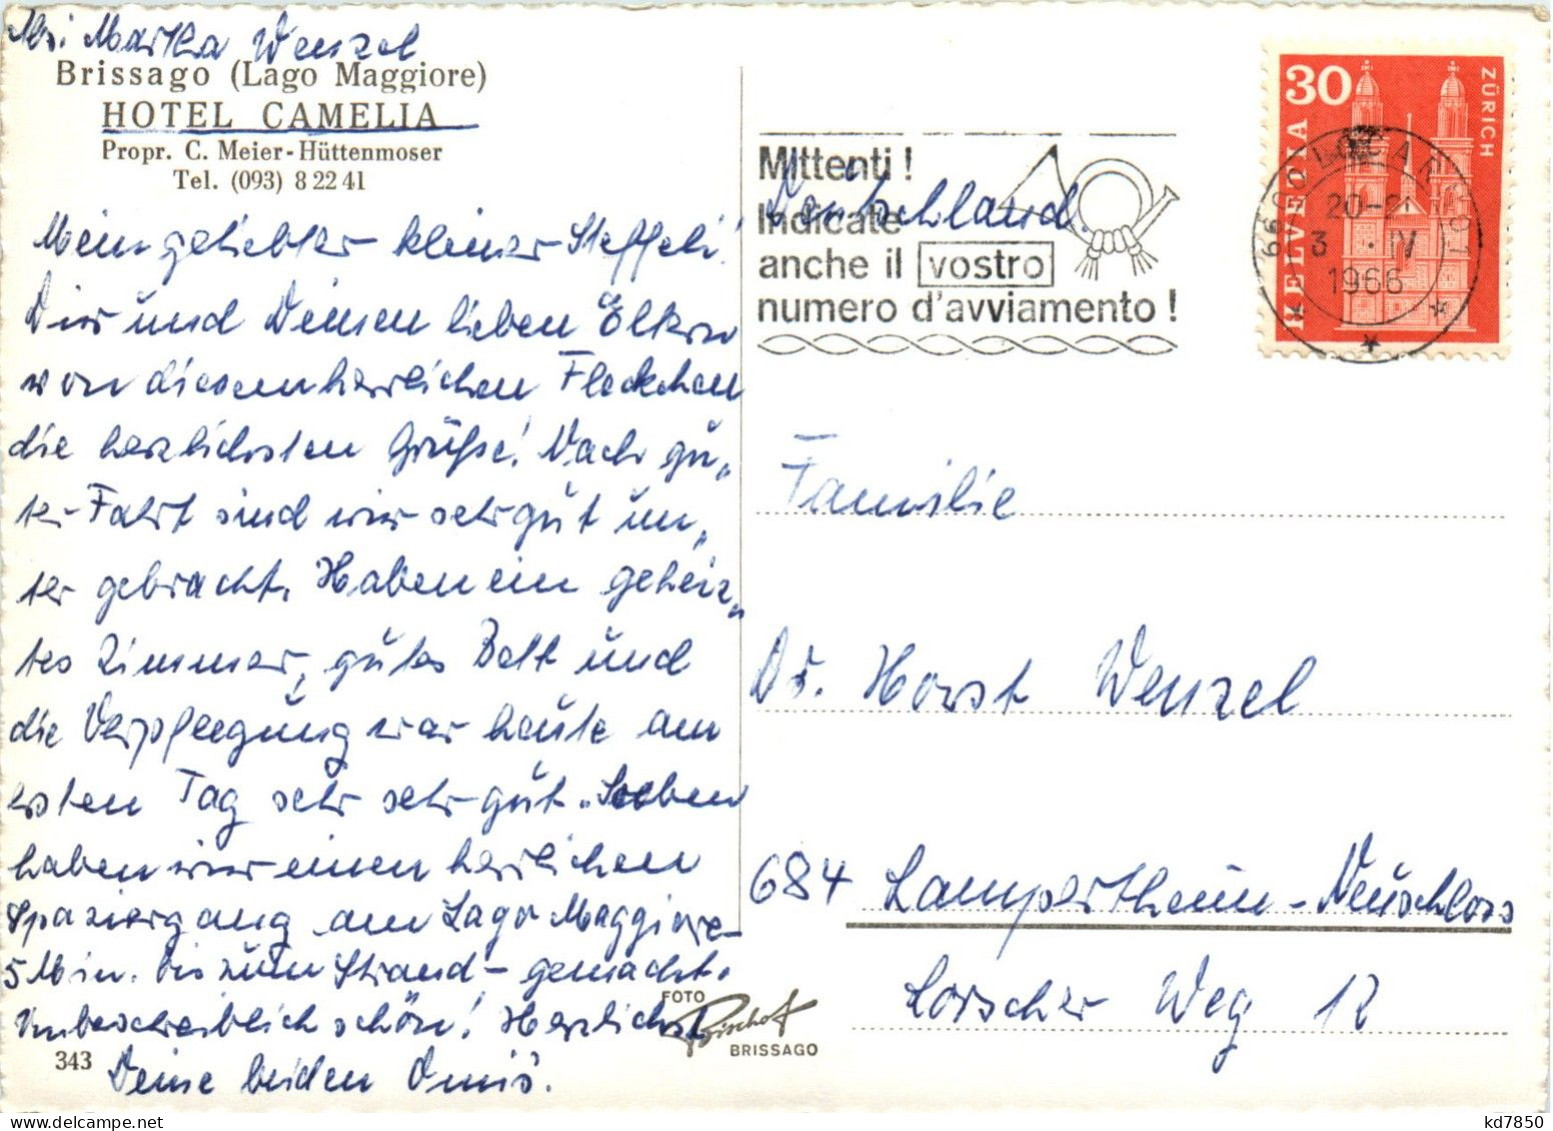 Martha Wenzel
Brissago (Lago Maggiore)
HOTEL CAMELIA
Propr. C. Meier-Hüttenmoser
Tel. (093) 8 22 41
Mein geliebter kleiner Steffeli!
Dir und Deinen lieben Eltern
von diesem herrlichen Fleckchen
die herzlichsten Grüße! Nach gu„
ter Fahrt sind wir sehr gut un„
ter gebracht. Haben ein geheiz„
tes Zimmer, gutes Bett und
die Verpflegung war heute am
ersten Tag sehr sehr gut. Soeben
haben wir einen herrlichen
Spaziergang am Lago Maggiore –
5 Min. bis zum Strand – gemacht.
Unbeschreiblich schön! Herzlichst
Deine beiden Omis.
343
FOTO
Bischof
BRISSAGO
Mittenti !
Indicate
anche il vostro
numero d'avviamento !
Deutschland.
30
ZÜRICH
HELVETIA
6600 LOCARNO 1
20-21
3 . IV
1966
Familie
Dr. Horst Wenzel
684 Lampertheim-Neuschloss
Lorscher Weg 12
kd7850